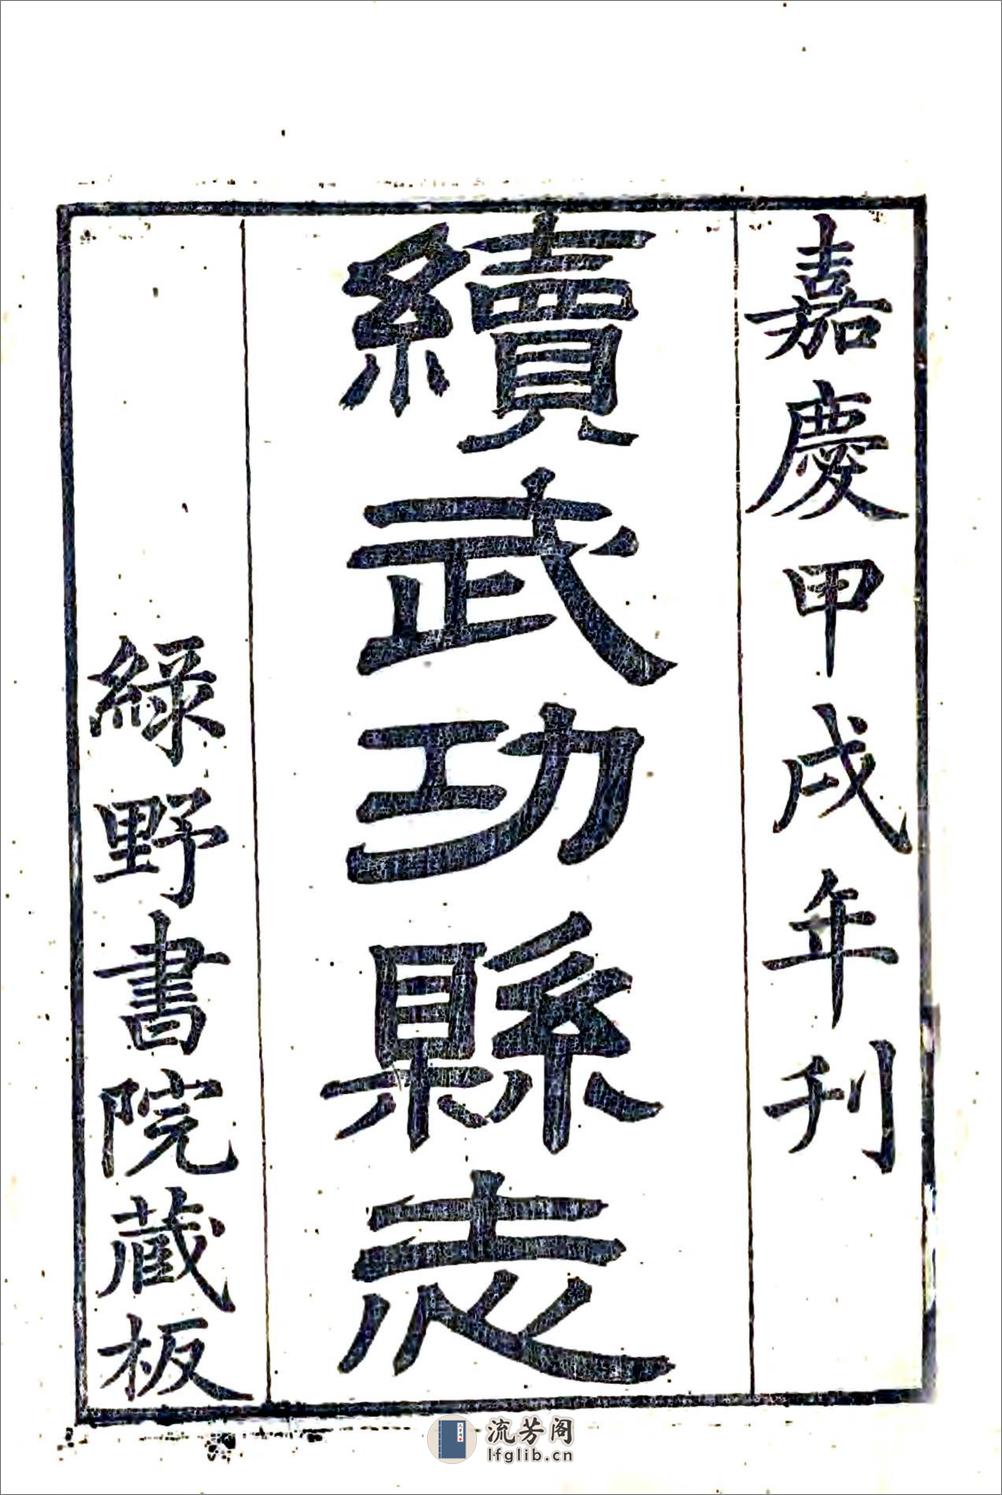 嘉慶甲戌年刋
續武功縣志
綠野書院蔵板
流芳阁
lfglib.cn